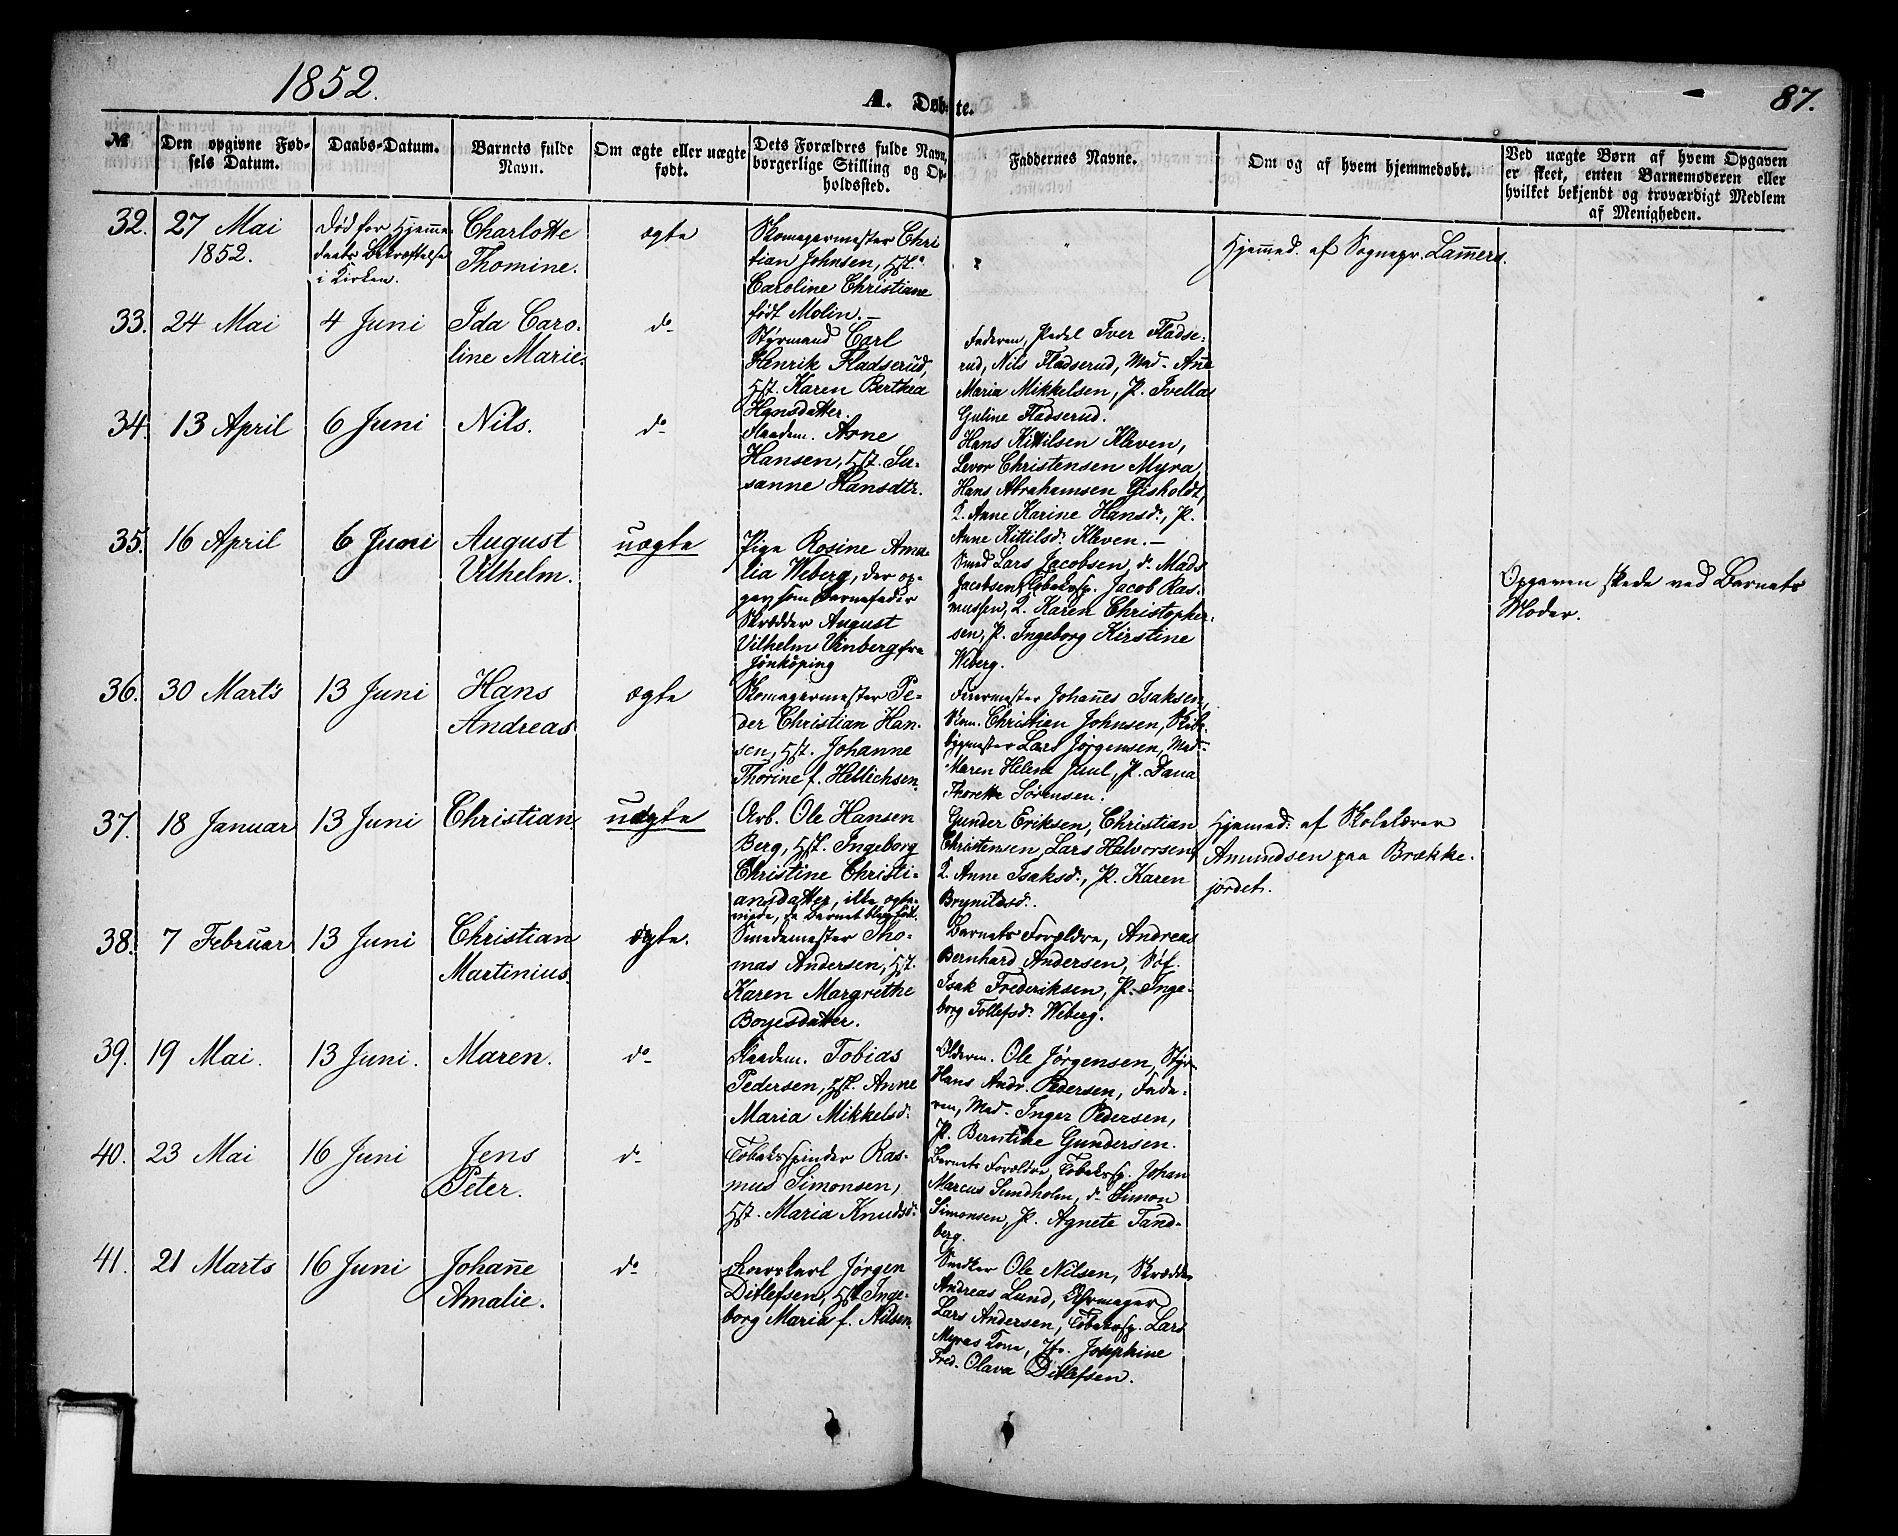 1852.
A. Døbte.
87.
№
Den opgivne Fød-
sels Datum.
Daabs-Datum.
Barnets fulde
Navn.
Om ægte eller uægte
født.
Dets Forældres fulde Navn,
borgerlige Stilling og Op-
holdssted.
Faddernes Navne.
Om og af hvem hjemmedøbt.
Ved uægte Børn af hvem Opgaven
er skeet, enten Barnemoderen eller
hvilket bekjendt og troværdigt Medlem
af Menigheden.
32.
27 Mai
1852.
Død før Hjemme
daabs Bekræftelse
i Kirken.
Charlotte
Thomine.
ægte
Skomagermester Chri
stian Johnsen, Hst.
Caroline Christiane
født Molin.
Hjemmed. af Sognepr. Lammers.
33.
24 Mai
4 Juni
Ida Caro-
line Marie.
do
Styrmand Carl
Henrik Fladserud,
Hst. Karen Berthea
Hansdatter.
Faderen, Pedel Iver Fladse-
rud, Nils Fladserud, Mad. Ane
Maria Mikkelsen, P. Tvella
Guline Fladserud.
34.
13 April
6 Juni
Nils.
do
Arne
Hansen, Hst. Su-
sanne Hansdtr.
Hans Kittilsen Kleven,
Levor Christensen Myra,
Hans Abrahamsen Gisholdt,
K. Anne Karine Hansd., P.
Anne Kittilsd. Kleven.
35.
16 April
6 Juni
August
Vilhelm.
uægte
Pige Rosine Ama-
lia Weberg, der op-
gav som Barnefader
Skrædder August
Vilhelm Vinberg fra
Jönköping
Smed Lars Jacobsen, do Mads
Jacobsen, Tobaksp. Jacob Ras-
mussen, K. Karen Christopher-
sen, P. Ingeborg Kirstine
Weberg.
Opgaven skede ved Barnets
Moder.
36.
30 Marts
13 Juni
Hans
Andreas
ægte
Skomagermester Pe-
der Christian Han-
sen, Hst. Johanne
Thorine f. Hellichsen.
Johanes Isaksen,
Skm. Christien Johnsen, Skibs-
bygmester Lars Jørgensen, Mad.
Maren Helene Juul, P. Dana
Thorette Sørensen.
37.
18 Januar
13 Juni
Christian.
uægte
Arb. Ole Hansen
Berg, Hst. Ingeborg
Christine Christi-
ansdatter, ikke ægte-
viede, da Barnet blev født.
Gunder Eriksen, Christian
Christensen, Lars Halvorsen,
K. Anne Isaksd., P. Karen
Brynildsd.
Hjemmed. af Skolelærer
Amundsen paa Brække-
jordet.
38.
7 Februar
13 Juni
Christian
Martinius.
ægte.
Smedemester Tho-
mas Andersen, Hst.
Karen Margrethe
Boyesdatter.
Barnets Forældre, Andreas
Bernhard Andersen, Søf.
Isak Frederiksen, P. Inge-
borg Tollefsd. Weberg.
39.
19 Mai.
13 Juni.
Maren.
do
Tobias
Pedersen, Hst. Anne
Maria Mikkelsd.
Olderm. Ole Jørgensen, Styr.
Hans Andr. Pedersen, Fade-
ren, Mad. Inger Pedersen,
P. Berntine Gundersen.
40.
23 Mai
16 Juni
Jens
Peter.
do
Tobaksspinder Ras-
mus Simonsen,
Hst. Maria Knudsd.
Barnets Forældre, Tobaksp. Johan
Marcus Sundholm, do Simon
Simonsen, P. Agnete Tand-
berg.
41.
21 Marts
16 Juni
Johane
Amalie.
do
Jørgen
Ditlefsen, Hst. Inge-
borg Maria f. Nilsen.
Snedker Ole Nilsen, Skrædder
Andreas Lund,
Lars Andersen, Tobaksp. Lars
Josephine
Fred. Olava Ditlefsen.